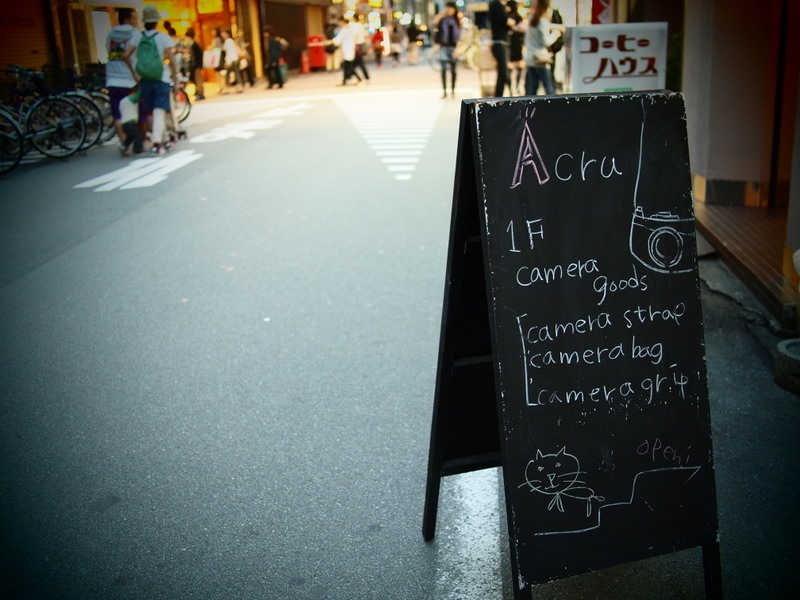 コーヒー
ハウス
Äcru
1F
camera
goods
camera strap
camera bag
camera grip
open!